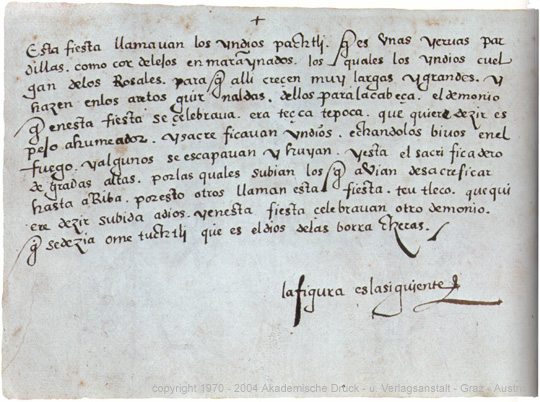 Esta fiesta llamavan los yndios pachtli. q̃ es vnas yeruas par
dillas. como cor delejos en marañados. los quales los yndios cuel
gan delos Rosales. para q̃ alli crecen muy largas y grandes. y
hazen enlos areitos guir naldas. dellos para la cabeça. el demonio
q̃ enesta fiesta se celebraua. era tezca tepoca. que quiere dezir es
pejo ahumeador. y sacre ficauan yndios. echandolos biuos en el
fuego. y algunos se escapauan y huyan. y esta el sacri ficadero
de gradas altas. por las quales subian los q̃ avian desacreficar
hasta aRiba. por esto otros llaman esta fiesta. teu tleco. que qui
ere dezir subida adios. yenesta fiesta celebrauan otro demonio.
q̃ sedezia ome tuchtli que es el dios delas borra cheras.
la figura es la siguiente
copyright 1970 - 2004 Akademische Druck - u. Verlagsanstalt - Graz - Austri